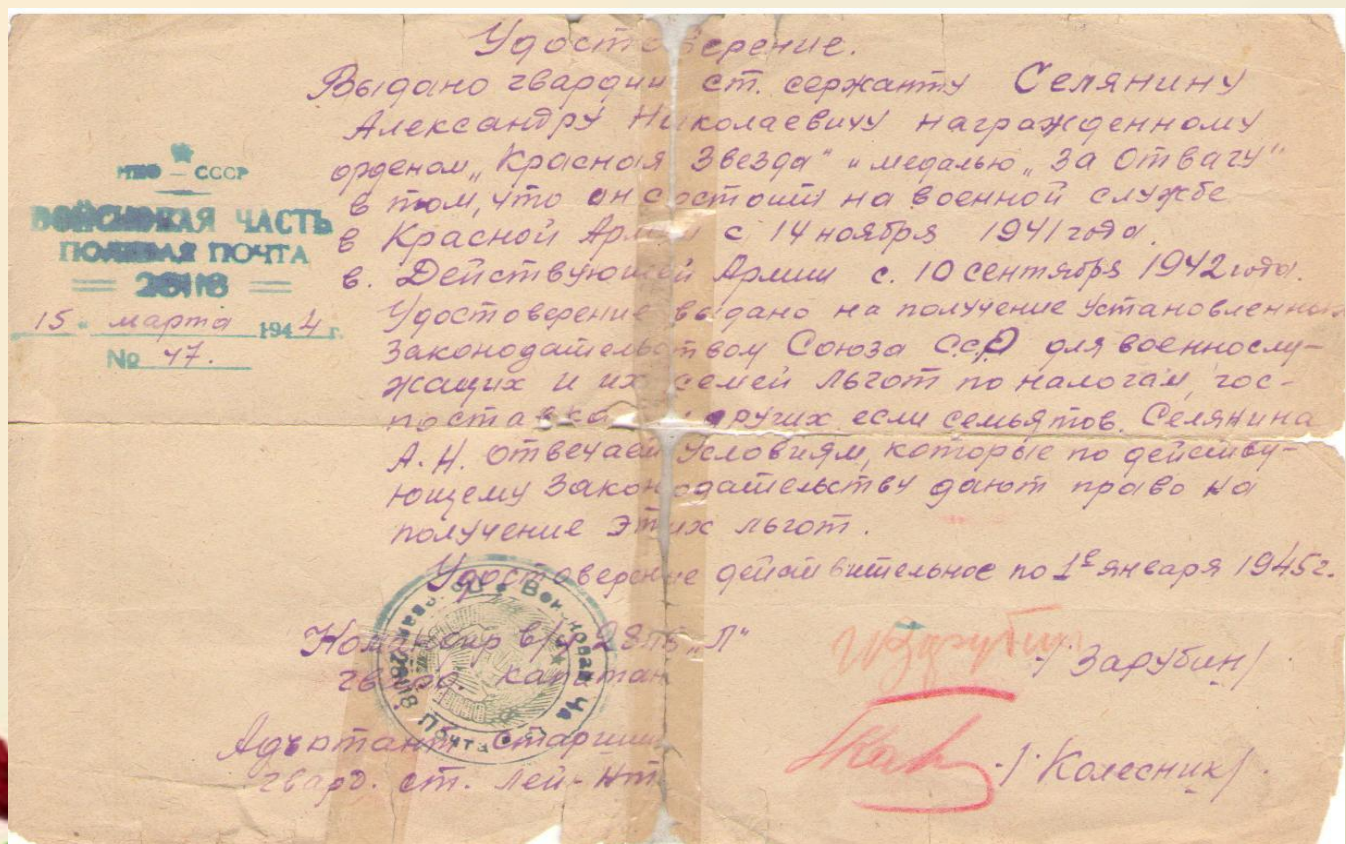 Удостоверение.
Выдано гвардии ст. сержанту Селянину
Александру Николаевичу награжденному
орденом „Красная Звезда" и медалью „За Отвагу"
в том, что он состоит на военной службе
в Красной Армии с 14 ноября 1941 года.
в. Действующей Армии с. 10 сентября 1942 года.
Удостоверение выдано на получение установленных
Законодательством Союза С.С.Р для военнослу-
жащих и их семей льгот по налогам, гос-
поставкам других если семья тов. Селянина
А.Н. отвечает условиям, которые по действу-
ющему Законодательству дают право на
получение этих льгот.
Удостоверение действительное по 1е января 1945г.
НКО — СССР
ВОЙСКОВАЯ ЧАСТЬ
ПОЛЕВАЯ ПОЧТА
28118
15 " марта 1944 г.
№ 47.
Командир в/ч 28118 „Л"
гвард. капитан /Зарубин/
Адъютант Старший
гвард. ст. лей-нт /Колесник/.
Войсковая Ча
28118 Почта